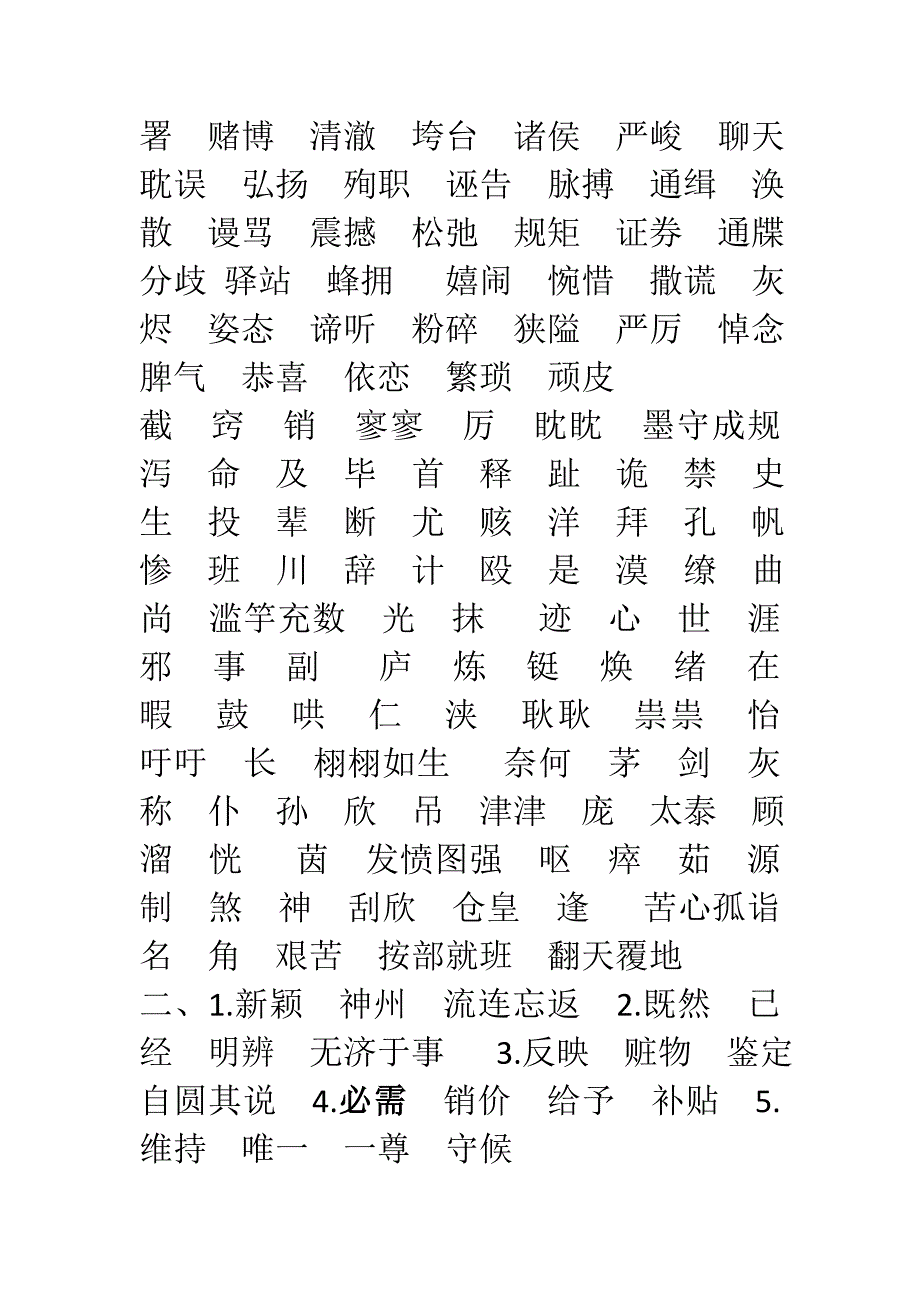 署 赌博 清澈 垮台 诸侯 严峻 聊天
耽误 弘扬 殉职 诬告 脉搏 通缉 涣
散 谩骂 震撼 松弛 规矩 证券 通牒
分歧 驿站 蜂拥 嬉闹 惋惜 撒谎 灰
烬 姿态 谛听 粉碎 狭隘 严厉 悼念
脾气 恭喜 依恋 繁琐 顽皮
截 窍 销 寥寥 厉 眈眈 墨守成规
泻 命 及 毕 首 释 趾 诡 禁 史
生 投 辈 断 尤 赅 洋 拜 孔 帆
惨 班 川 辞 计 殴 是 漠 缭 曲
尚 滥竽充数 光 抹 迹 心 世 涯
邪 事 副 庐 炼 铤 焕 绪 在
暇 鼓 哄 仁 浃 耿耿 祟祟 怡
吁吁 长 栩栩如生 奈何 茅 剑 灰
称 仆 孙 欣 吊 津津 庞 太泰 顾
溜 恍 茵 发愤图强 呕 瘁 茹 源
制 煞 神 刮欣 仓皇 逢 苦心孤诣
名 角 艰苦 按部就班 翻天覆地
二、1.新颖 神州 流连忘返 2.既然 己
经 明辨 无济于事 3.反映 赃物 鉴定
自圆其说 4.必需 销价 给予 补贴 5.
维持 唯一 一尊 守候